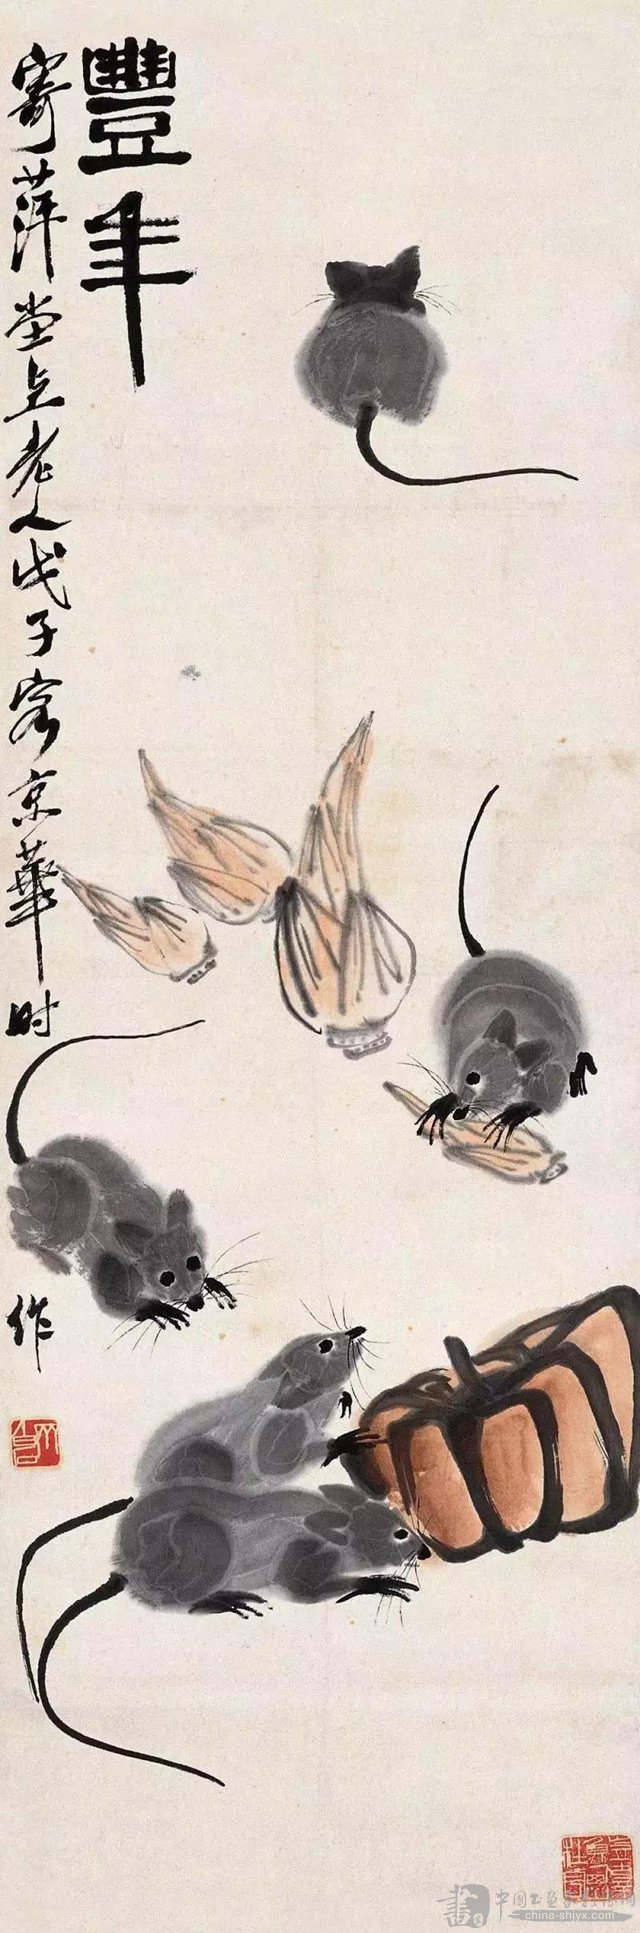 豐年
寄萍堂上老人戊子客京華时
作
中国书画家教协网
china-shjyx.com